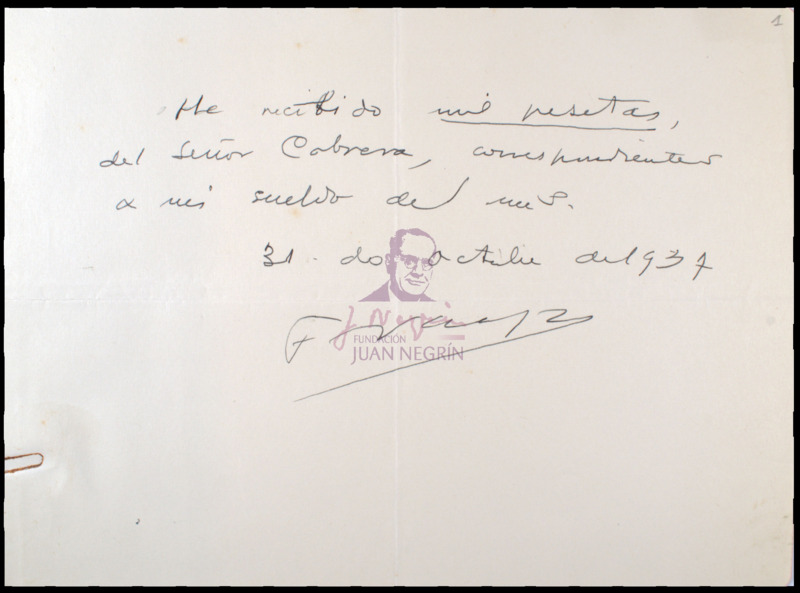 1
He recibido mil pesetas,
del Señor Cabrera, correspondientes
a mi sueldo del mes.
31 de octubre de 1937
J Negrín
FUNDACIÓN
JUAN NEGRÍN